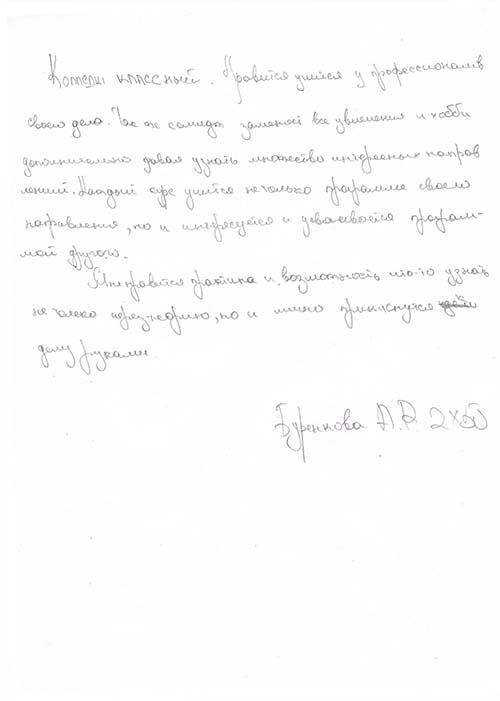 Колледж классный. Нравится учится у профессионалов
своего дела. Так же заменяет все увлечения и хобби
дополнительно давая узнать множество интересных направ
лений. Каждый курс учится не только программе своего
направления, но и интересуется и программ-
мой другого.
Мне нравится практика и возможность что-то узнать
не только через теорию, но и лично прикоснутся
делу руками.
Буренкова А.Р. 2ХБО